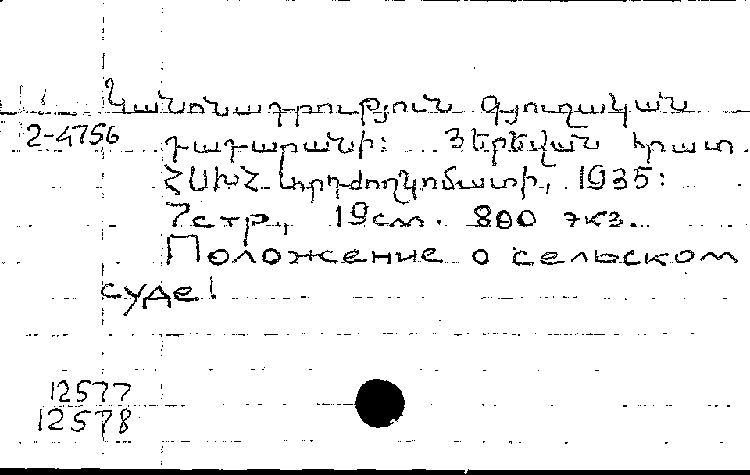 Կանոնադրություն Գյուղական
2-4756 դատարանի: Յերեվան հրատ.
ՀՍԽՀ Արդժողկոմատի, 1935:
7стр., 19см. 800 экз.
Положение о сельском
суде!
12577
12578